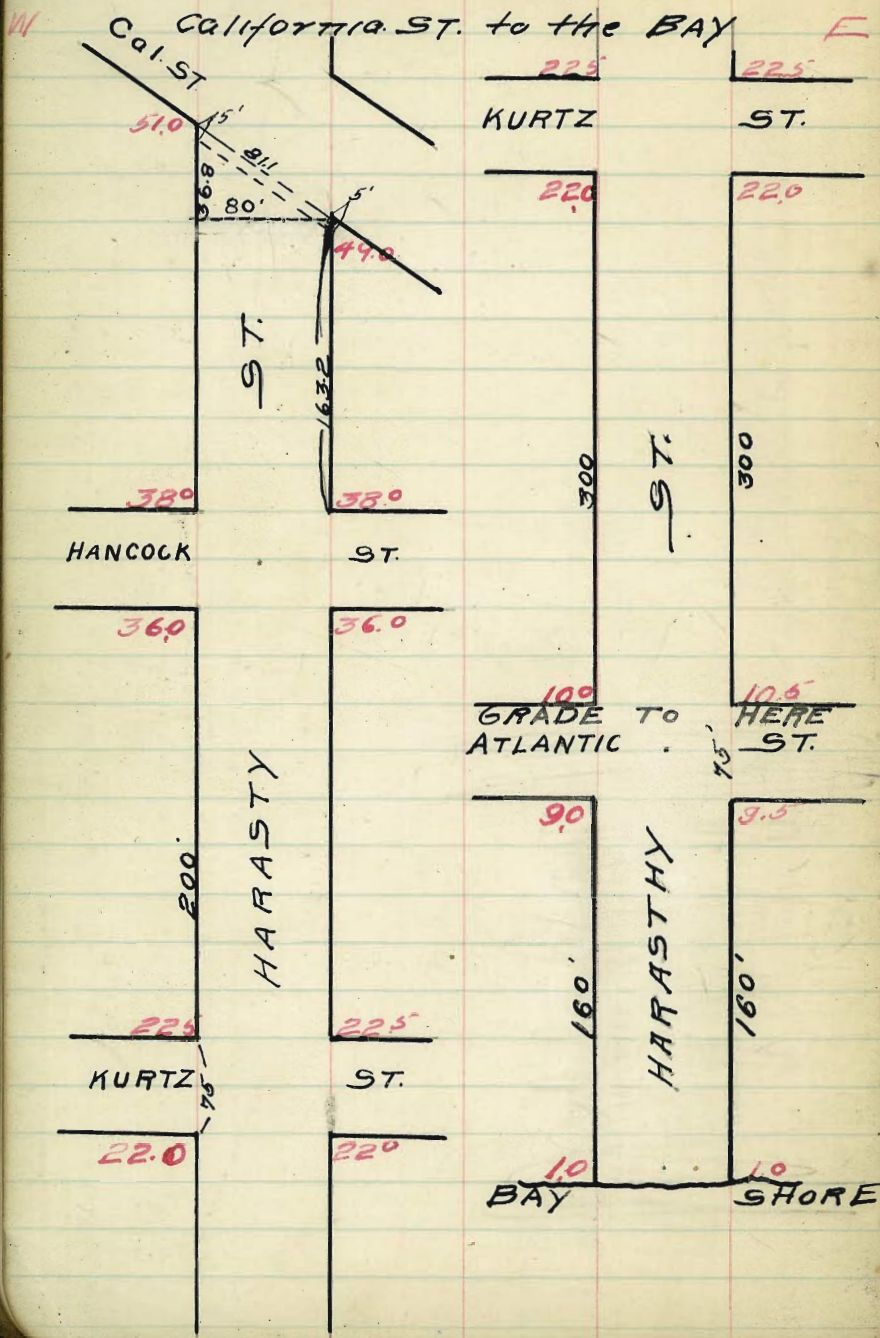 W California. ST. to the BAY E
Cal. ST.
51.0 15'
36.8
81.1
80'
5'
49.0
ST.
163.2
38⁰ 38⁰
HANCOCK ST.
36.0 36.0
HARASTY
200'
22⁵ 22⁵
KURTZ ST.
75
22.0 22⁰
22⁵ 22.5
KURTZ ST.
22.0 22.0
300 ST. 300
10⁰ 10.5
GRADE TO HERE
ATLANTIC . ST.
75'
9.0 9.5
HARASTHY
160' 160'
1.0 1.0
BAY SHORE